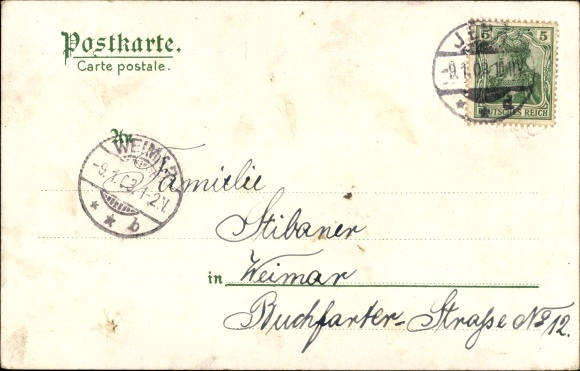 Postkarte.
Carte postale.
5 5
DEUTSCHES REICH
JENA
-9.1.03.
An
WEIMAR
-9.1.03.1-2.V.
* * b
Familie
Stibaner
in Weimar
Buchfarter-Straße No 12.